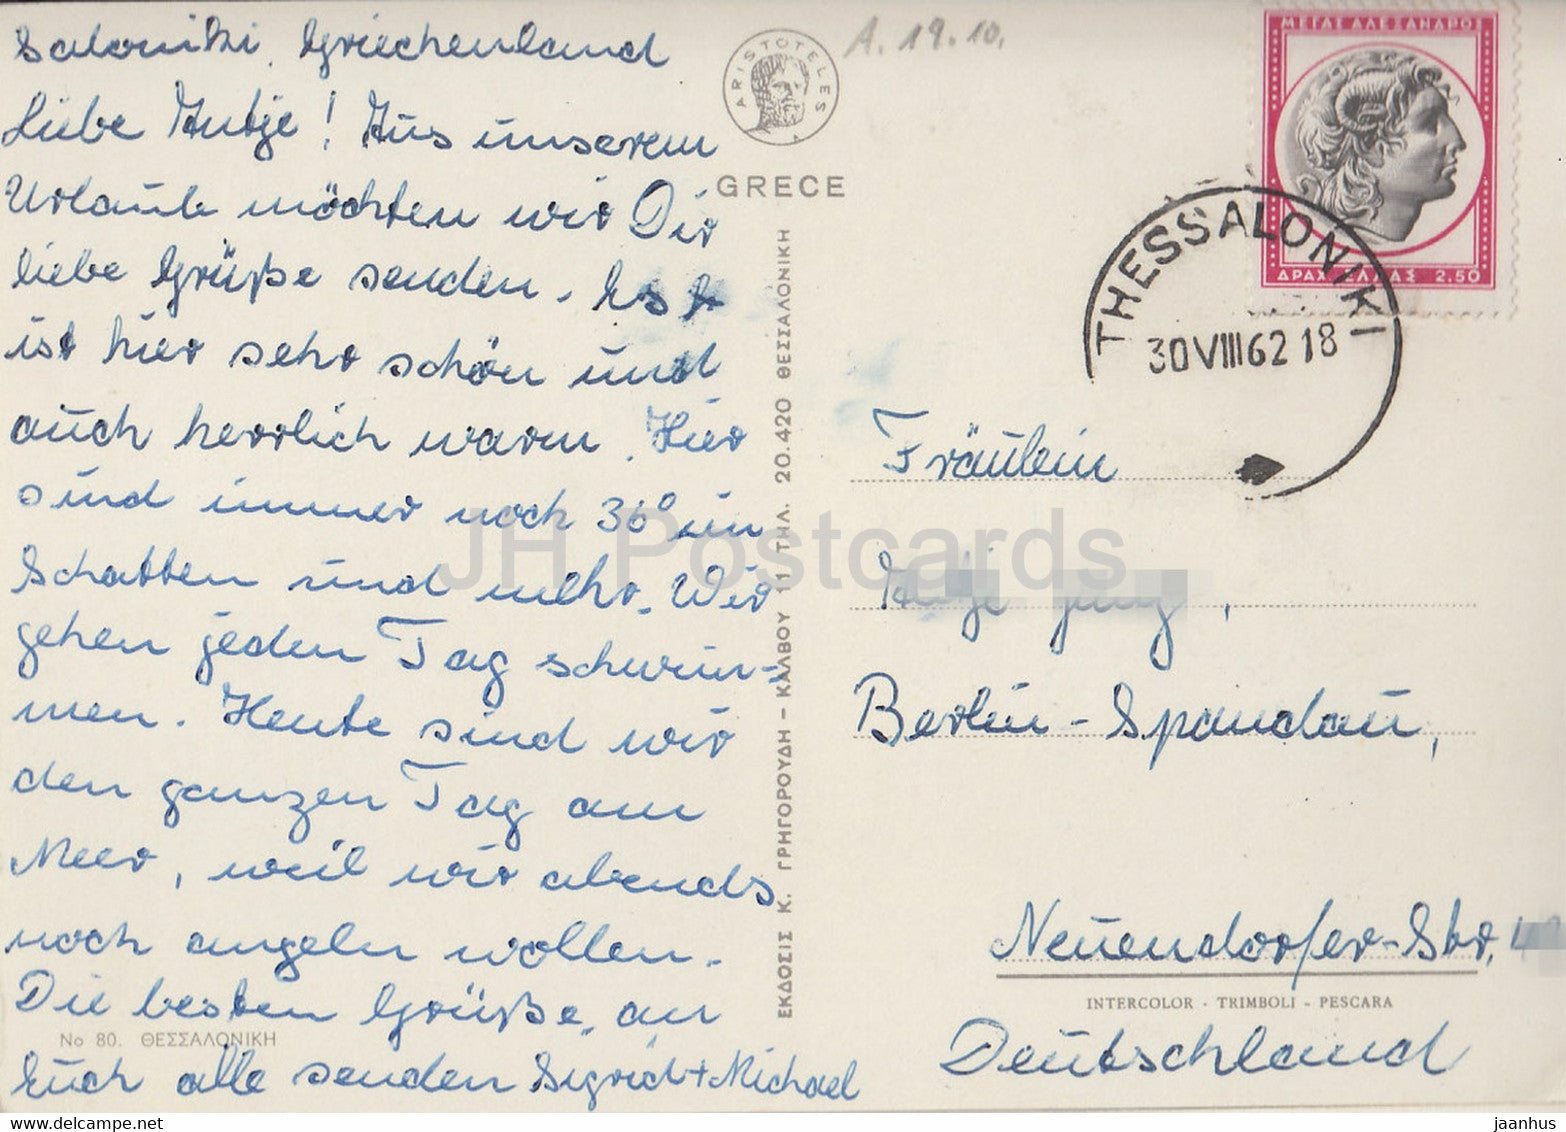 Saloniki, Griechenland
Liebe Antje! Aus unserem
Urlaub möchten wir Dir
liebe Grüße senden. Es
ist hier sehr schön und
auch herrlich warm. Hier
sind immer noch 36° im
Schatten und mehr. Wir
gehen jeden Tag schwim-
men. Heute sind wir
den ganzen Tag am
Meer, weil wir abends
noch angeln wollen.
Die besten Grüße an
Euch alle senden Sigrid + Michael
No 80. ΘΕΣΣΑΛΟΝΙΚΗ
ARISTOTELES
GRECE
ΕΚΔΟΣΙΣ Κ. ΓΡΗΓΟΡΟΥΔΗ - ΚΑΛΒΟΥ 11 ΤΗΛ. 20.420 ΘΕΣΣΑΛΟΝΙΚΗ
A. 19.10.
ΜΕΓΑΣ ΑΛΕΞΑΝΔΡΟΣ
ΔΡΑΧ ΕΛΛΑΣ 2.50
THESSALONIKI
30 VIII 62 18
Fräulein
Berlin-Spandau,
Neuendorfer-Str.
INTERCOLOR - TRIMBOLI - PESCARA
Deutschland
JH Postcards
jaanhus